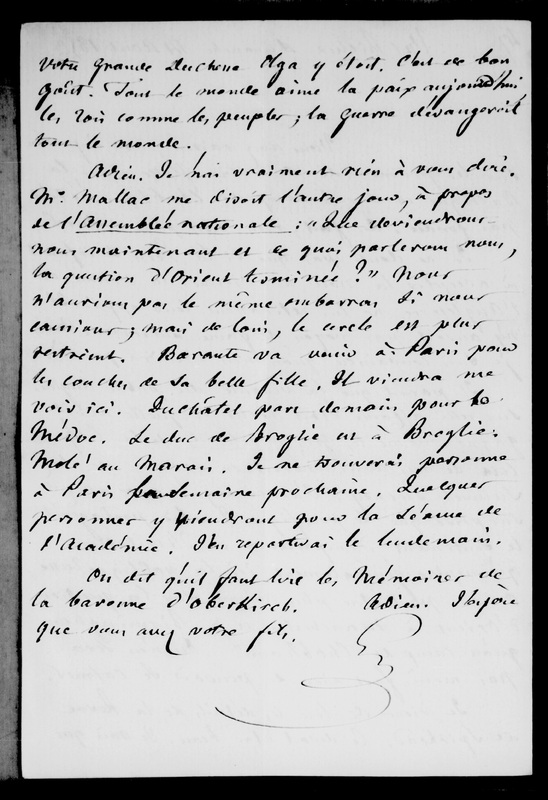 votre grande Duchesse Olga y étoit. C'est de bon
goût. Tout le monde aime la paix aujourd'hui,
les rois comme les peuples ; la guerre dérangeroit
tout le monde.
Adieu. Je n'ai vraiment rien à vous dire.
Mr. Mallac me disoit l'autre jour, à propos
de l'Assemblée nationale : "Que deviendrons
nous maintenant et de quoi parlerons nous,
la question d'Orient terminée ?" Nous
n'aurions pas le même embarras si nous
causions ; mais de loin, le cercle est plus
restreint. Barante va venir à Paris pour
les couches de sa belle fille. Il viendra me
voir ici. Duchâtel part demain pour le
Médoc. Le duc de Broglie est à Broglie.
Molé au Marais. Je ne trouverai personne
à Paris la semaine prochaine. Quelques
personnes y viendront pour la séance de
l'Académie. J'en repartirai le lendemain.
On dit qu'il faut lire les Mémoires de
la baronne d'Oberkirch. Adieu. J'espère
que vous avez votre fils.